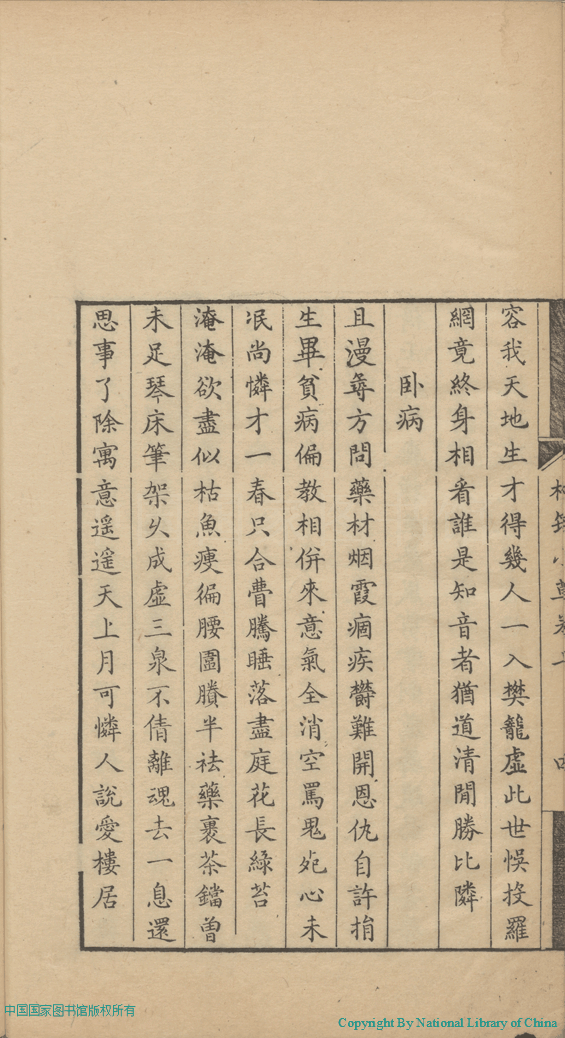 容我天地生才得幾人一入樊籠虛此世悞投羅
網竟終身相看誰是知音者猶道清閒勝比隣
卧病
且漫尋方問藥材烟霞痼疾欝難開恩仇自許捐
生畢貧病偏教相併來意氣全消空罵鬼死心未
泯尚憐才一春只合瞢騰睡落盡庭花長綠苔
淹淹欲盡似枯魚瘦徧腰圍賸半袪藥裹茶鐺曾
未足琴床筆架乆成虛三泉不倩離魂去一息還
思事了除寓意遥遥天上月可憐人說愛樓居
中国国家图书馆版权所有
Copyright By National Library of China